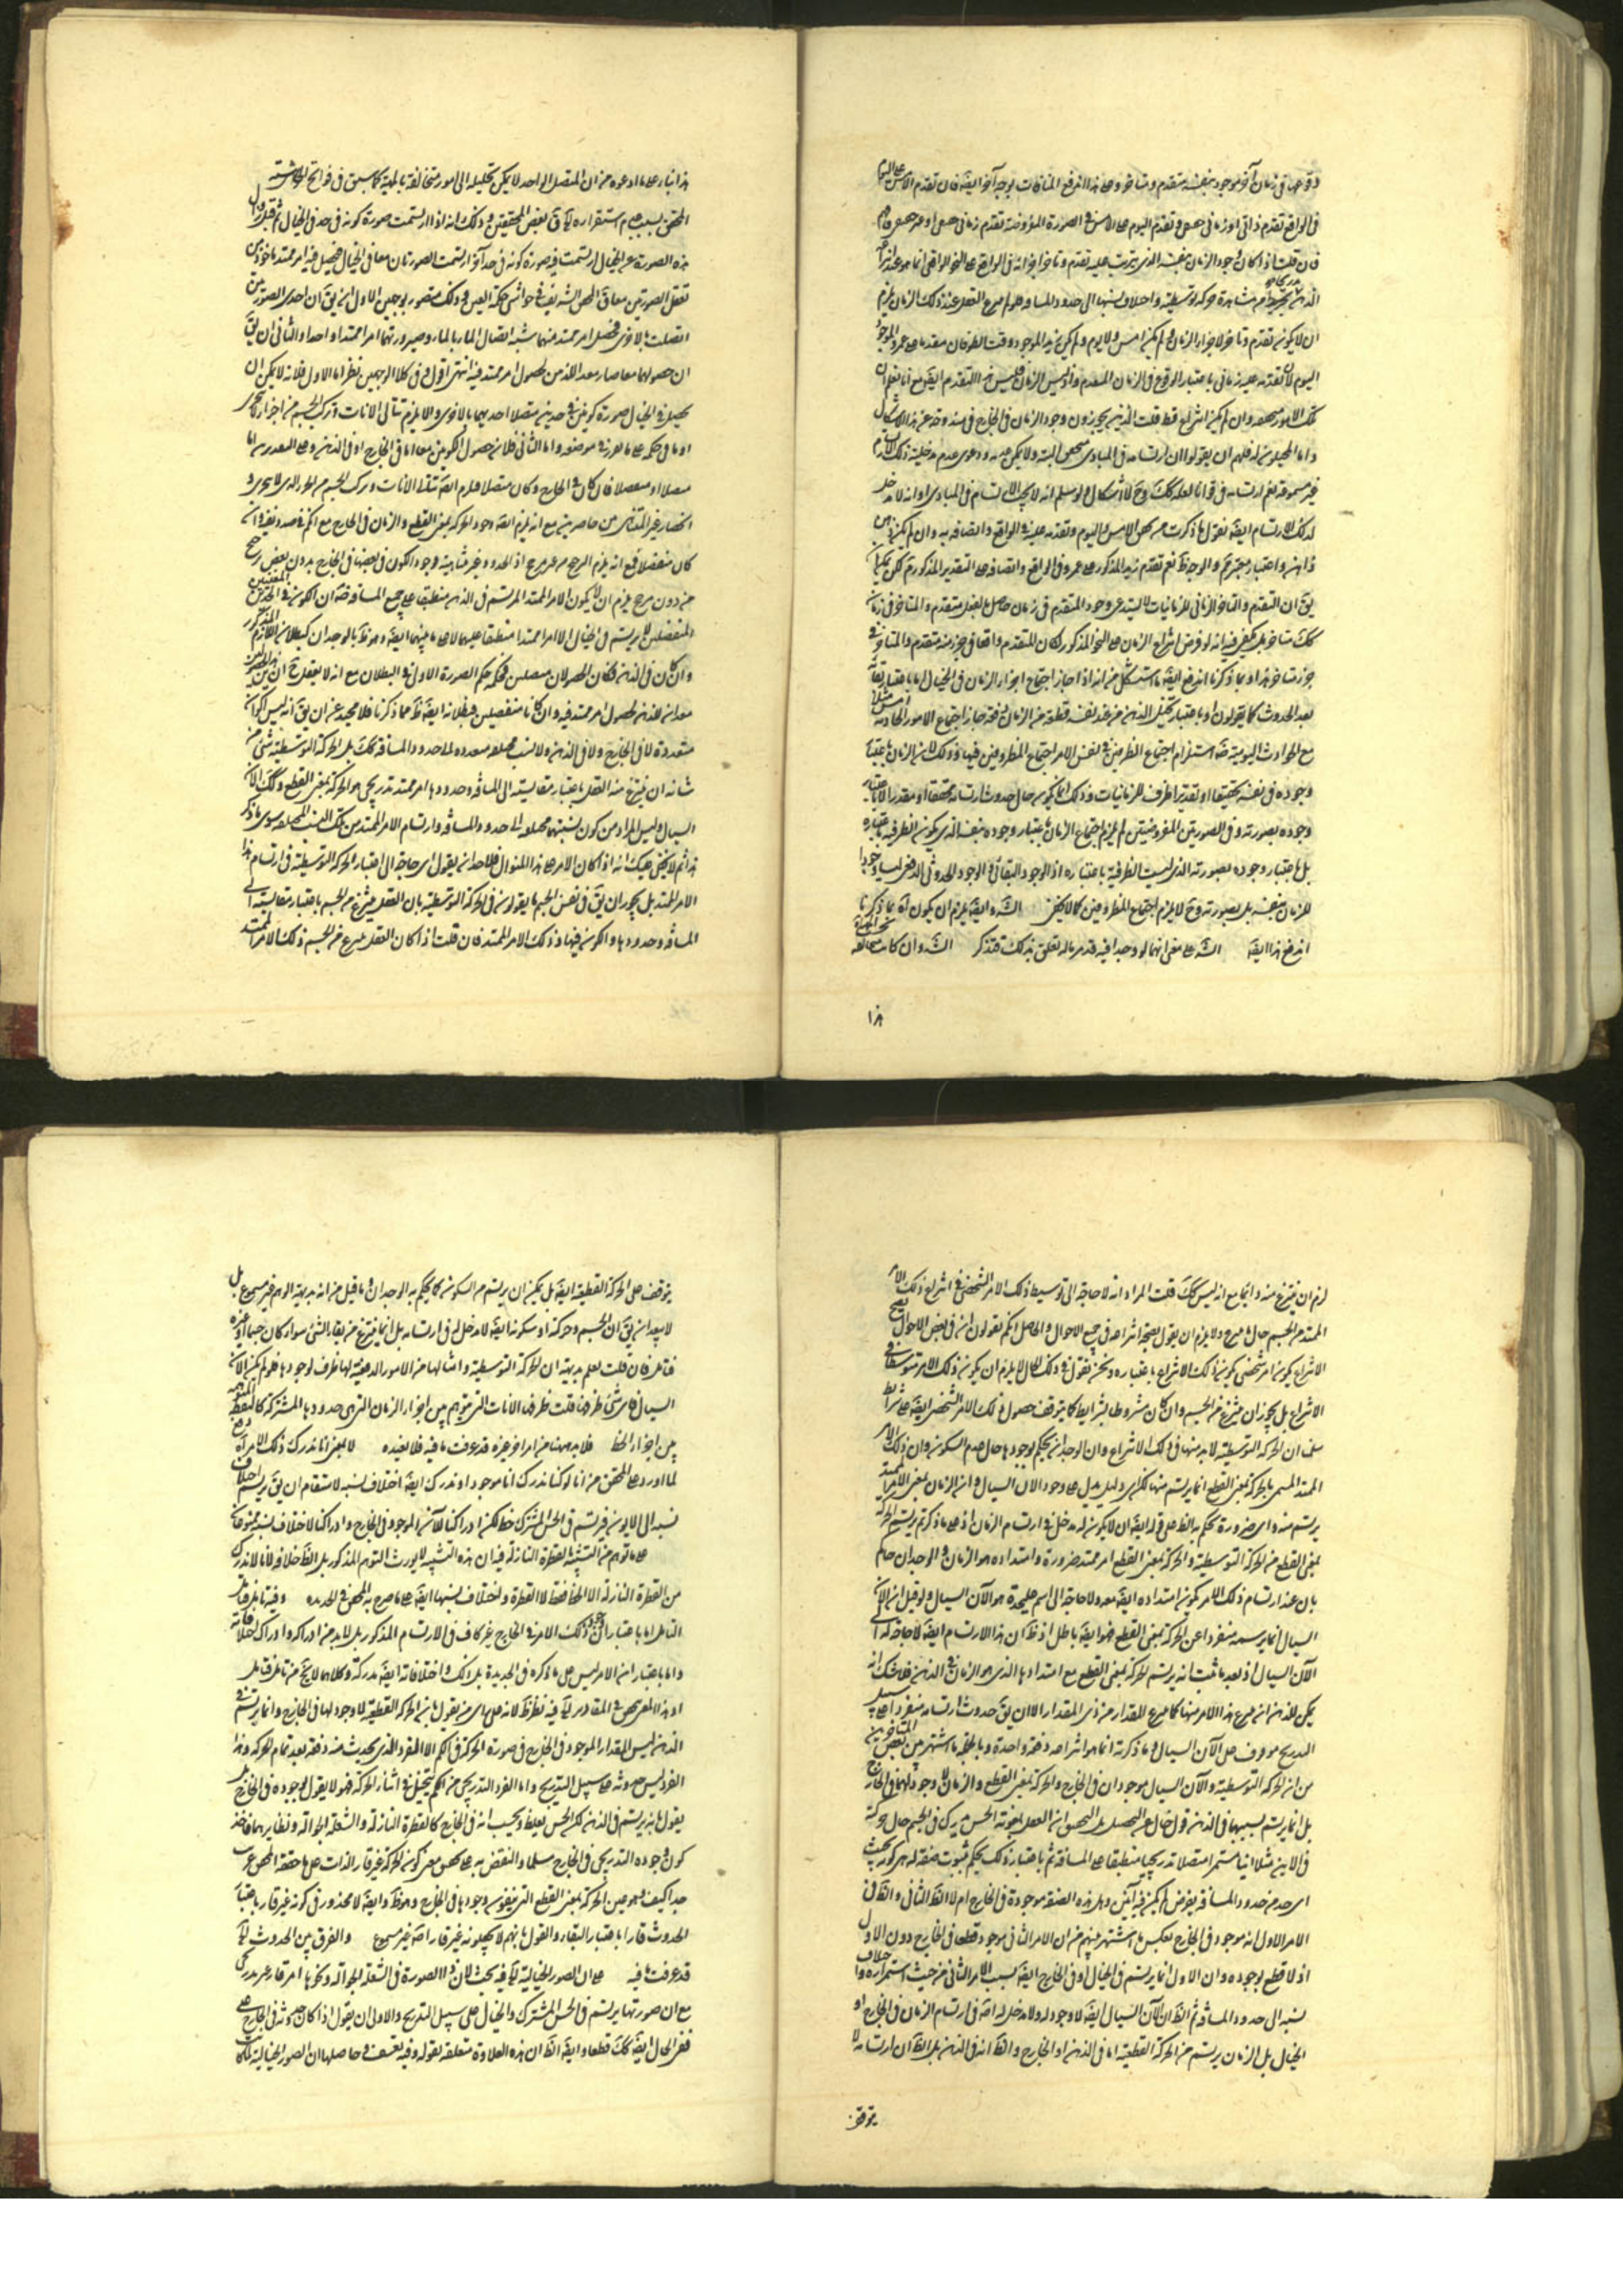 فى زمان آخر موجود بنفسه متقدم ومتأخر وعلى هذا اندفع المنافات بوجه آخر ايضا فان تقدم الامس على اليوم
فى الواقع تقدم ذاتى او زمانى وتقدم اليوم على الامس فى الصورة المفروضة تقدم زمانى
فان قلت اذا كان وجود الزمان بنفسه الذى يترتب عليه تقدم وتأخر اجزائه فى الواقع على النحو الواقعى انما هو عند
الذهن مشاهدة حركة توسطية واختلاف نسبها الى حدود المسافة
ان لا يكون تقدم وتأخر لاجزاء الزمان ولم يكن امس ولا يوم ولم يكن زيد الموجود وقت الطوفان مقدما على عمرو الموجود
اليوم لان تقدمه عليه زمانى باعتبار الوقوع فى الزمان المتقدم واذ ليس الزمان فليس هذا التقدم ايضا مع انا نعلم ان
تلك الامور متحققة وان لم يكن انتزاع قط قلت الذين يجوزون وجود الزمان فى الخارج فى مندوحة عن هذا الاشكال
واما المحيلون له فلهم ان يقولوا ان ارتسامه فى المبادى متحقق البتة ولا يمكن ودعوى عدم مدخلية ذلك الارتسام
غير مسموعة نعم ارتسامه فى قوانا لعله كك وح لا اشكال ولو سلم انه لا يجب الارتسام فى المبادى او انه لا مدخل
لذلك الارتسام ايضا نقول ما ذكرت من تحقق الامس واليوم وتقدمه عليه فى الواقع واتصافه به وان لم يكن ذهن
ذاهن واعتبار معتبر ثم والوجه ظ نعم تقدم زيد المذكور على عمرو فى الواقع واتصافه على التقدير المذكور ثم لكن يمكن ان
يق ان التقدم والتأخر الزمانى للزمانيات لا يستدعى وجود المتقدم فى زمان حاصل بالفعل متقدم والمتأخر فى زمان
كك متأخر بل يكفى فيه انه لو فرض انتزاع الزمان على النحو المذكور لكان المتقدم واقعا فى جزء منه متقدم والمتأخر فى
جزء متأخر هذا وبما ذكرنا اندفع ايضا ما استشكل من انه اذا جاز اجتماع اجزاء الزمان فى الخيال اما باعتبار بقائه
بعد الحدوث كما يقولون او باعتبار تخيل الذهن من عند نفسه قطعة من الزمان دفعة جاز اجتماع الامور الحادثة امس مثلا
مع الحوادث اليومية ضرورة استلزام اجتماع الظرفين فى نفس الامر اجتماع المظروفين فيها وذلك لان الزمان باعتبار
وجوده فى نفسه تحقيقا او تقديرا ظرف للزمانيات وذلك انما يكون حال حدوث ارتسامه محققا او مقدرا لا باعتبار
وجوده بصورته وفى الصورتين المفروضتين لم يلزم اجتماع الزمان باعتبار وجوده بنفسه الذى يكون الظرفية باعتباره
بل باعتبار وجوده بصورته الذى ليست الظرفية باعتباره اذ الوجود البقائى والوجود الحدوثى الدفعى ليسا وجودا
للزمان بنفسه بل بصورته وح لا يلزم اجتماع المظروفين كما لا يخفى الش وايضا يلزم ان يكون اه بما ذكرنا
اندفع هذا ايضا الش على معنى انهما لو وجدا فيه قد مر ما له تعلق بذلك فتذكر الش وان كانت
١٨
هذا بناء على ما ادعوه من ان المتصل الواحد لا يمكن تحليله الى امور متخالفة بالمهية كما سبق فى فواتح
المحقق بسبب عدم استقراره اه قال بعض المحققين وذلك انه اذا ارتسمت صورة كونه فى حد فى الخيال ثم قبل زوال
هذه الصورة عن الخيال ارتسمت فيه صورة كونه فى حد آخر ارتسمت الصورتان معا فى الخيال فيحصل فيه امر ممتد
تعقل الصورتين معا قال المحقق الشريف فى حواشى حكمة العين وذلك متصور بوجهين الاول ان يق ان احدى الصورتين
اتصلت بالاخرى فحصل امر ممتد منهما شبه اتصال الماء بالماء وصيرورتهما امرا ممتدا واحدا والثانى ان يق
ان حصولهما معا صار معدا للذهن لحصول امر ممتد فيه انتهى اقول وفى كلا الوجهين نظر اما الاول فلانه لا يمكن ان
يحصل فى الخيال صورة كونين فى حدين متصلا احديهما بالاخرى والا يلزم تتالى الانات وتركب الجسم من اجزاء لا تتجزى
او ما فى حكمه على ما قرر فى موضعه واما الثانى فلان حصول الكونين معا اما فى الخارج او فى الذهن وعلى التقديرين اما
متصلا او منفصلا فان كان فى الخارج وكان متصلا فيلزم ايضا تتالى الانات وتركب الجسم من الجزء الذى لا يتجزى و
انحصار غير المتناهى بين حاصرين مع انه يلزم ايضا وجود الحركة بمعنى القطع والزمان فى الخارج مع انكم فى صدد نفيه وان
كان منفصلا فمع انه يلزم الترجيح من غير مرجح اذ الحدود غير متناهية ووجود الكون فى بعضها فى الخارج بدون بعض ترجيح
من دون مرجح يلزم ان لا يكون الامر الممتد المرتسم فى الذهن منطبقا على جميع المسافة ضرورة ان الكونين فى الحدين المعينين
المنفصلين لا يرتسم فى الخيال الا امرا ممتدا منطبقا عليهما لا على ما بينهما ايضا وهو ظ بالوجدان كبطلان اللازم المذكور
وان كان فى الذهن فكان الحصولان متصلين فحكمه حكم الصورة الاولى فى البطلان مع انه لا يعقل ح ان
معدا للذهن لحصول امر ممتد فيه وان كانا منفصلين فبطلانه ايضا ظ مما ذكرنا فلا محيد عن ان يق انه ليس اكوان
متعددة لا فى الخارج ولا فى الذهن ولا نسب متعددة الى حدود المسافة كك بل الحركة التوسطية شئ من
شانه ان ينتزع منه العقل باعتبار مقايسته الى المسافة وحدودها امر ممتد تدريجى هو الحركة بمعنى القطع وكك الآن
السيال وليس المراد من كون نسبتهما مختلفة الى حدود المسافة وارتسام الامر الممتد من تلك النسب المختلفة سوى ما ذكر
هذا ثم لا يخفى عليك انه اذا كان الامر على هذا المنوال فلاحد ان يقول اى حاجة الى اعتبار الحركة التوسطية فى ارتسام هذا
الامر الممتد بل يجوز ان يق فى نفس الجسم ما يقولونه فى الحركة التوسطية بان العقل ينتزع من الجسم باعتبار مقايسته الى
المسافة وحدودها والكون فيها ذلك الامر الممتد فان قلت اذا كان العقل ينتزع من الجسم ذلك الامر الممتد
لزم ان ينتزع منه دائما مع انه ليس كك قلت المراد انه لا حاجة الى توسيط ذلك الامر الشخصى فى انتزاع ذلك الامر
الممتد من الجسم حال ما ينتزع ولا يلزم ان يقول بصحة انتزاعه فى جميع الاحوال والحاصل انكم تقولون ان فى بعض الاحوال يصح
الانتزاع بكون امر شخصى يكون ذلك الانتزاع باعتباره ونحن نقول فى ذلك الحال لا يلزم ان يكون ذلك الامر متوسطا فى
الانتزاع بل يجوز ان ينتزع من الجسم وان كان مشروطا بشرايط كما يتوقف حصول ذلك الامر الشخصى ايضا على شرايط
سلمنا ان الحركة التوسطية لا بد منها فى ذلك الانتزاع وان الوجدان يحكم بوجودها حال عدم السكون وان ذلك الامر
الممتد المسمى بالحركة بمعنى القطع انما يرتسم منها لكن اى دليل يدل على وجود الآن السيال وان الزمان بمعنى الامر الممتد
يرتسم منه واى ضرورة تحكم به الظ على قوله ايضا ان لا يكون له مدخل فى ارتسام الزمان اذ على ما ذكرتم يرتسم الحركة
بمعنى القطع من الحركة التوسطية والحركة بمعنى القطع امر ممتد ضرورة وامتداده هو الزمان والوجدان حاكم
بان عند ارتسام ذلك الامر يكون امتداده ايضا معه ولا حاجة الى اسم عليحدة هو الآن السيال ولو قيل ان الآن
السيال انما يرسمه منفردا عن الحركة بمعنى القطع فهو ايضا باطل اذ ظ ان هذا الارتسام ايضا لا حاجة له الى
الآن السيال اذ بعد ما ثبت انه يرتسم الحركة بمعنى القطع مع امتدادها الذى هو الزمان فى الذهن فلا شك انه
يمكن للذهن ان ينتزع هذا الامر منها كما ينتزع المقدار من ذى المقدار الا ان يق حدوث ارتسامه منفردا على سبيل
التدريج موقوف على الآن السيال وما ذكرته انما هو انتزاعه دفعة واحدة وبالجملة ما اشتهر بين بعض المتأخرين
من ان الحركة التوسطية والآن السيال موجودان فى الخارج والحركة بمعنى القطع والزمان لا وجود لهما فى الخارج
بل انما يرتسم بسببهما فى الذهن قول خال عن التحصيل بل التحقيق ان العقل بمعونة الحس يدرك فى الجسم حال حركته
فى الاين مثلا اينا مستمرا متصلا تدريجيا منطبقا على المسافة ثم باعتبار ذلك يحكم بثبوت صفة له هى كونه بحيث
اى حد من حدود المسافة يفرض لم يكن فيه آنين وهل هذه الصفة موجودة فى الخارج ام لا الظ الثانى والظ فى
الامر الاول انه موجود فى الخارج بعكس ما اشتهر بينهم من ان الامر الثانى موجود قطعا فى الخارج دون الاول
اذ لا قطع بوجوده وان الاول انما يرتسم فى الخيال او فى الخارج ايضا بسبب الامر الثانى من حيث استمراره واختلاف
نسبه الى حدود المسافة ثم الظ ان الآن السيال ايضا لا وجود له ولا مدخل له اصلا فى ارتسام الزمان فى الخارج او
الخيال بل الزمان يرتسم من الحركة القطعية اما فى الذهن او الخارج والظ انه فى الذهن بل الظ ان ارتسامه لا
يتوقف
يتوقف على الحركة القطعية ايضا بل يمكن ان يرتسم من السكون كما يحكم به الوجدان وما قيل من انه بديهة الوهم غير مسموع بل
لا يبعد ان يق ان الجسم وحركته او سكونه ايضا لا مدخل له فى ارتسامه بل انما ينتزع من بقاء الشئ سواء كان جسما او غيره
فتامل فان قلت نعلم بديهة ان الحركة التوسطية وامثالها من الامور الدفعية لها ظرف لوجودها فلو لم يكن الآن
السيال فاى شئ ظرفها قلت ظرفها الانات التى تتوهم بين اجزاء الزمان التى هى حدودها المشتركة كالنقطة المتوهمة
بين اجزاء الخط فلا بد ههنا من امر اخر غيره قد عرفت ما فيه فلا نعيده لا يعنى انا ندرك ذلك الامر اه
لما اورد على المحقق من انا لو كنا ندرك انا موجودا وندرك ايضا اختلاف نسبه لاستقام ان يق يرتسم اختلاف
نسبه الى الايون فيرتسم فى الحس المشترك خط لكن ادراكنا للآن الموجود فى الخارج وادراكنا لاختلاف نسبه ممنوعان
على ما توهم من التشبيه بالقطرة النازلة فيه ان هذه التشبيه لا يورث التوهم المذكور بل الظ خلافه لانا لا ندرك
من القطرة النازلة الا الخط فقط لا القطرة واختلاف نسبها ايضا على ما صرح به المحقق فى الجديدة وفيه تامل قال
التامل اما باعتبار ان وجود ذلك الامر فى الخارج غير كاف فى الارتسام المذكور بل لا بد من ادراكه وادراك اختلافاته
واما باعتبار ان الامر ليس على ما ذكره فى الجديدة بل ذلك واختلافاته ايضا مدركة وكلاهما لا يخ من تامل قال
او هذا المعنى متحقق فى المقادير اه فيه نظر ظ لانه على راى من يقول بان الحركة القطعية لا وجود لها فى الخارج وانما يرتسم فى
الذهن ليس المقدار الموجود فى الخارج فى صورة الحركة فى الكم الا الفرد الذى يحدث منه دفعة بعد تمام الحركة وهذا
الفرد ليس حدوثه على سبيل التدريج واما الفرد التدريجى من الكم يتخيل فى اثناء الحركة فهو لا يقول بوجوده فى الخارج بل
يقول بانه يرتسم فى الذهن لكن الحس يغلط ويحسب انه فى الخارج كالقطرة النازلة والشعلة الجوالة ونظايرهما فاخذ
كون وجوده التدريجى فى الخارج مسلما والنقض به على تحقق معنى كون الحركة غير قار الذات على ما حققه المحقق غريب
جدا كيف وهو عين الحركة بمعنى القطع التى ينفون وجودها فى الخارج وهو ظ وايضا لا محذور فى كونه غير قار باعتبار
الحدوث قارا باعتبار البقاء والقول بانهم لا يجعلونه غير قار اصلا غير مسموع والفرق بين الحدوث اه
قد عرفت ما فيه على ان الصور الخيالية اه فيه بحث لان الصورة فى الشعلة الجوالة ونحوها امر قار غير متحرك
مع ان صورتها يرتسم فى الحس المشترك والخيال على سبيل التدريج والاولى ان يقول اذا كان حدوثه فى الخارج على
ففى الخيال ايضا كك قطعا وايضا الظ ان هذه العلاوة متعلقة بقوله وفيه تعسف وحاصلها ان الصور الخيالية